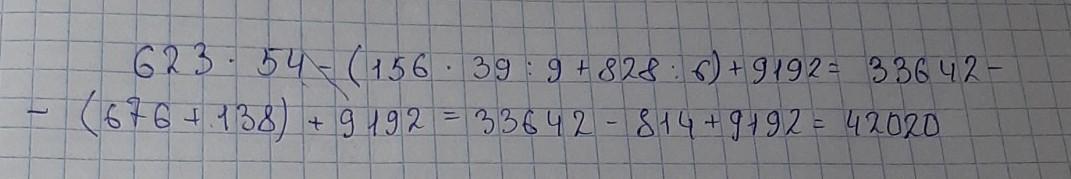 623 · 54 - (156 · 39 : 9 + 828 : 6) + 9192 = 33642 -
- (676 + 138) + 9192 = 33642 - 814 + 9192 = 42020